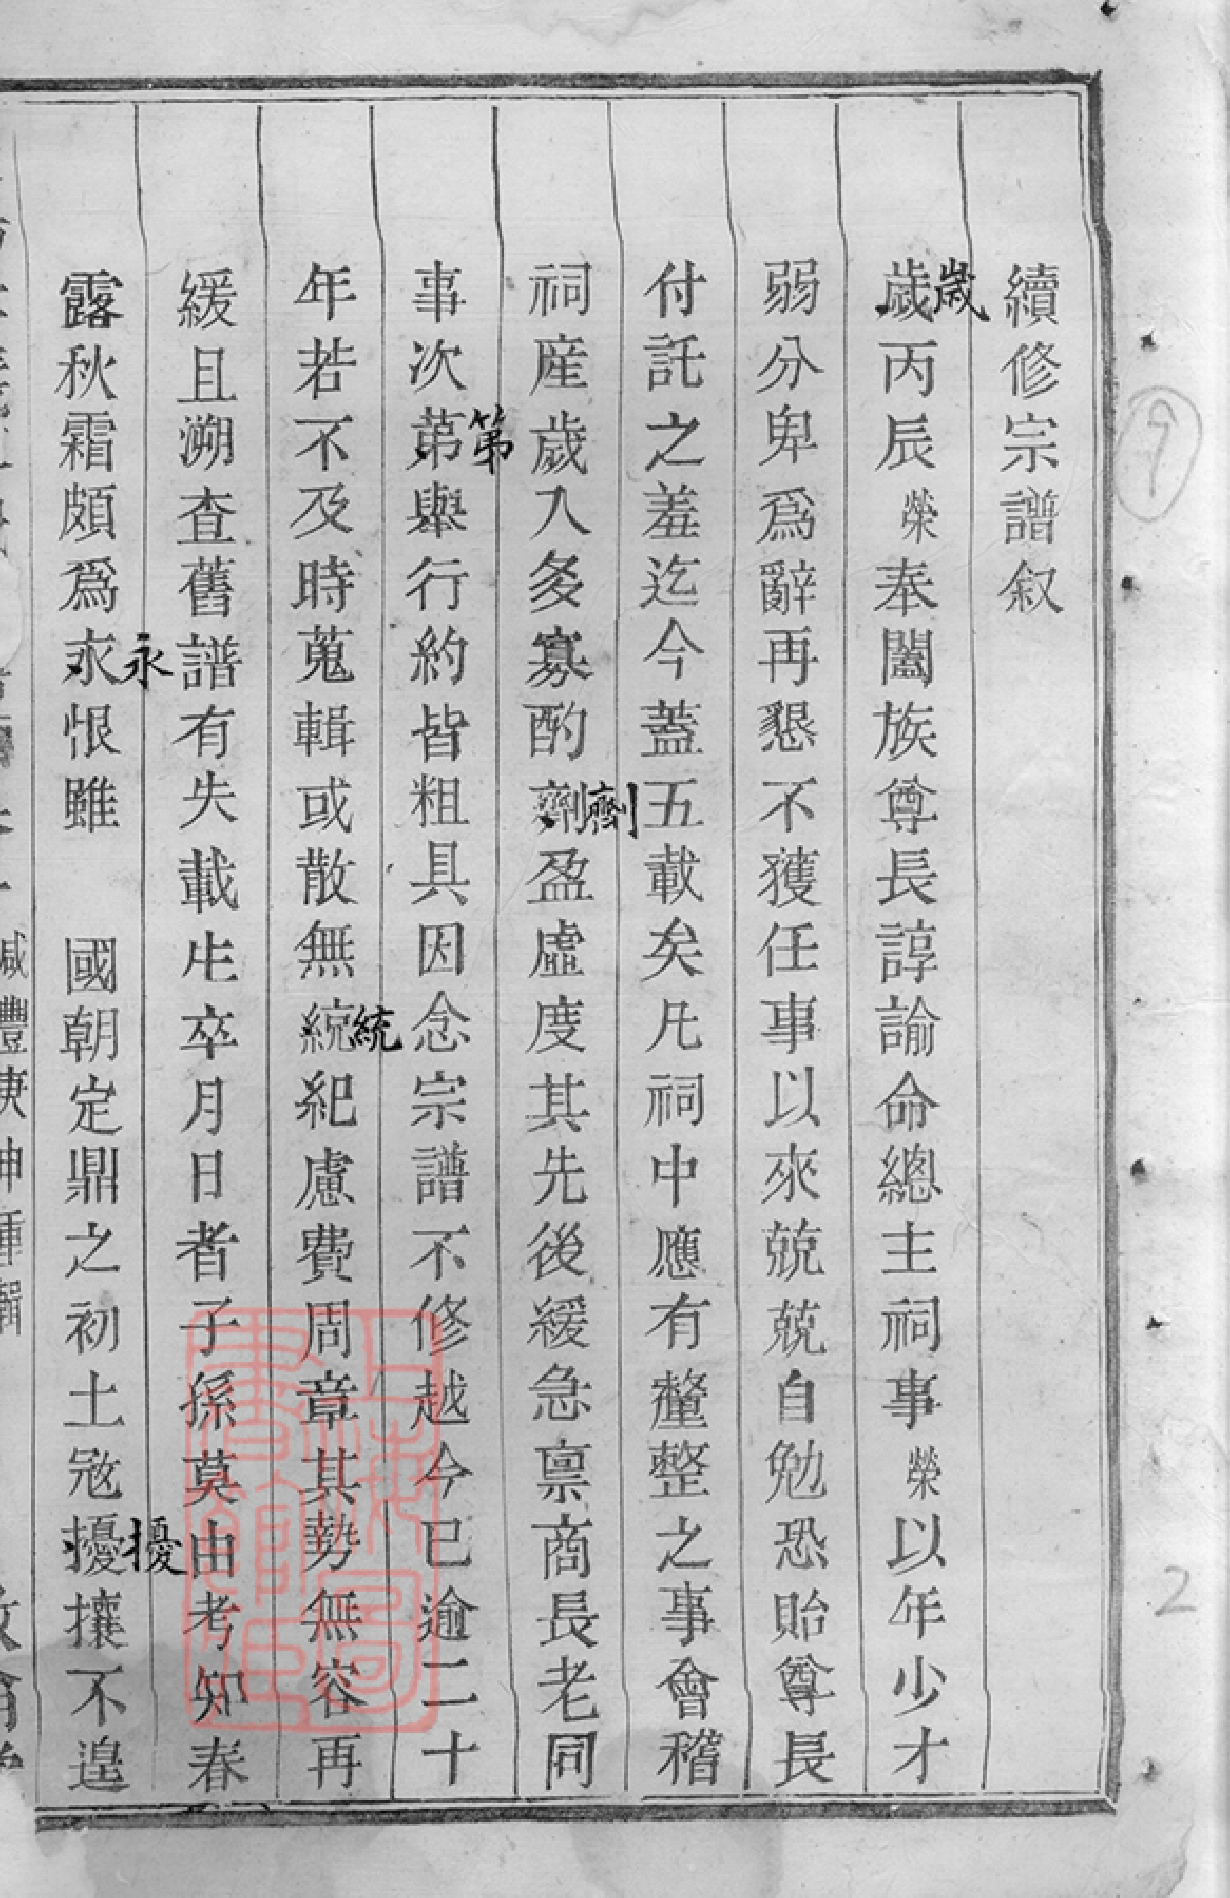 續修宗譜叙
歲丙辰榮奉闔族尊長諄諭命總主祠事榮以年少才
歲
弱分卑爲辭再懇不獲任事以來兢兢自勉恐貽尊長
付託之羞迄今蓋五載矣凡祠中應有釐整之事會稽
祠產歲入多寡酌劑盈虛度其先後緩急禀商長老同
劑
事次第舉行約皆粗具因念宗譜不修越今已逾二十
第
年若不及時蒐輯或散無統紀慮費周章其勢無容再
統
緩且溯查舊譜有失載生卒月日者子孫莫由考知春
露秋霜頗爲永恨雖 國朝定鼎之初土宼擾攘不遑
永
擾
咸豐庚申重輯
上海圖書館藏
9
2